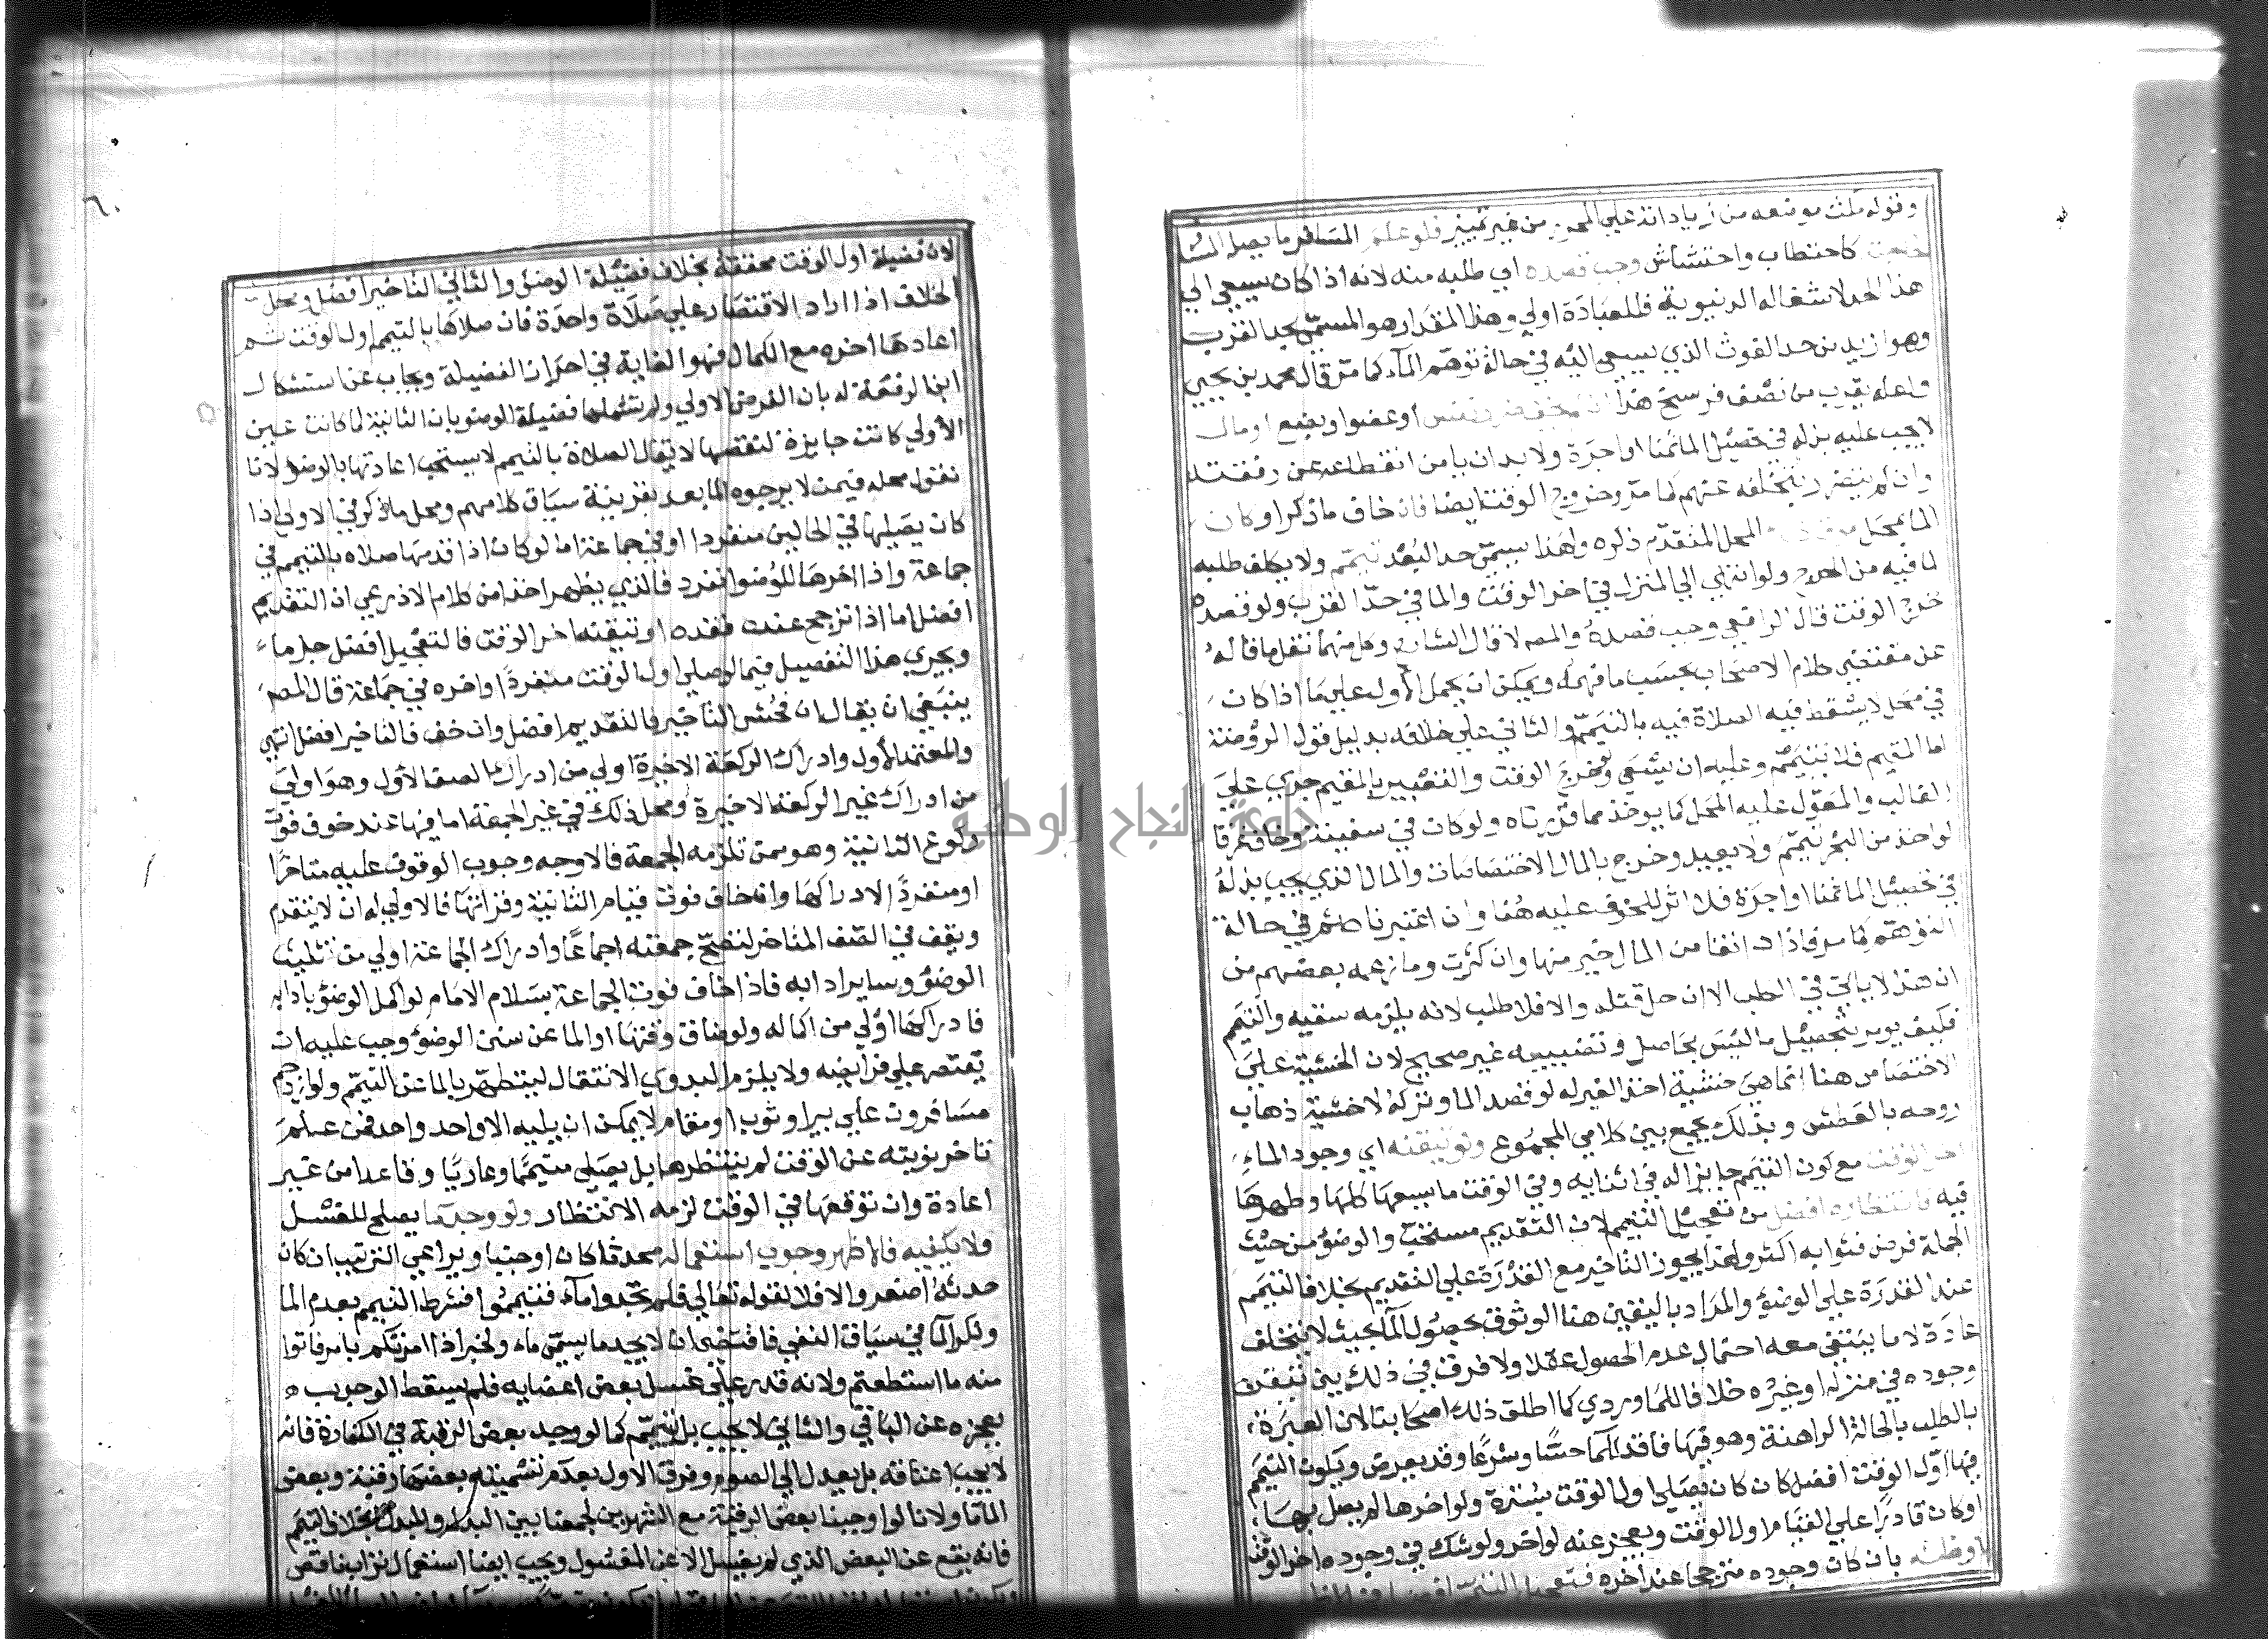 وقوله قلت موضعه من زياداته علي المحرر من غير تمييز فلو علم المسافر ما يصله المسا
لحاجته كاحتطاب واحتشاش وجب قصده اي طلبه منه لانه اذا كان يسعي الي
هذا الحد لاشغاله الدنيوية فللعبادة اولي وهذا المقدار هو المسمي بحد القرب
وهو ازيد من حد الغوث الذي يسعي اليه في حالة توهم الماء كما مر قال محمد بن يحيي
ولعله يقرب من نصف فرسخ هذا ان لم يخف ضرر نفس او عضو او بضع او مال
لا يجب عليه بذله في تحصيل الماء ثمنا او اجرة ولا بد ان يامن انقطاعه عن رفقته
وان لم يتضرر بتخلفه عنهم كما مر وخروج الوقت ايضا فان خاف ما ذكر او كان
الماء بمحل فوق ذلك المحل المتقدم ذكره وهذا يسمي حد البعد تيمم ولا يكلف طلبه
لما فيه من الحرج ولو انتهي الي المنزل في اخر الوقت والماء في حد القرب ولو قصده
خرج الوقت قال الرافعي وجب قصده والمص لا قال الشارح وكل منهما نقل ما قاله
عن مقتضي كلام الاصحاب بحسب ما فهمه ويمكن ان يحمل الاول علي ما اذا كان
في محل لا يسقط فيه الصلاة فيه بالتيمم والثاني علي خلافه بدليل قول الروضة
اما المقيم فلا يتيمم وعليه ان يسعي ولو خرج الوقت والتعبير بالمقيم جري علي
الغالب والمعول عليه المحل كما يوخذ مما قررناه ولو كان في سفينة وخاف غرقا
لو اخذ من البحر تيمم ولا يعيد وخرج بالمال الاختصاصات والمال الذي يجب بذله
في تحصيل الماء ثمنا او اجرة فلا اثر للخوف عليه هنا وان اعتبرناه ثم في حالة
التوهم كما مر فاذا دانقا من المال خير منها وان كثرت وما زعمه بعضهم من
ان هذا لا ياتي في الكلب الا ان حل قتله والا فلا طلب لانه يلزمه سقيه والتيمم
فكيف يومر بتحصيل ما ليس بحاصل وتضييعه غير صحيح لان الخشية علي
الاختصاص هنا انما هي خشية اخذ الغير له لو قصد الماء وتركه لا خشية ذهاب
روحه بالعطش وبذلك يجمع بين كلامي المجموع ولو تيقنه اي وجود الماء
اخر الوقت مع كون التيمم جايزا له في اثنايه وفي الوقت ما يسعها كلها وطهرها
فيه فانتظاره افضل من تعجيل التيمم لان التقديم مستحب والوضوء من حيث
الجملة فرض فثوابه اكثر ولهذا يجوز التاخير مع القدرة علي التقديم بخلاف التيمم
عند القدرة علي الوضوء والمراد باليقين هنا الوثوق بحصول الماء بحيث لا يتخلف
عادة لا ما ينتفي معه احتمال عدم الحصول عقلا ولا فرق في ذلك بين تيقن
وجوده في منزله او غيره خلافا للماوردي كما اطلق ذلك اصحابنا لان العبرة
بالطلب بالحالة الراهنة وهو فيها فاقد الماء حسا وشرعا وقد يعرض ويكون التيمم
فيها اول الوقت افضل كان كان يصلي اول الوقت بسترة ولو اخرها لم يصل بها
او كان قادرا علي القيام اول الوقت ويعجز عنه لو اخر ولو شك في وجوده اخر الوقت
او ظنه بان كان وجوده مترجحا عند اخره فتعجيل التيمم افضل في الاظهر
٦٠
لان فضيلة اول الوقت محققة بخلاف فضيلة الوضوء والثاني التاخير افضل ومحل
الخلاف اذا اراد الاقتصار علي صلاة واحدة فان صلاها بالتيمم اول الوقت ثم
اعادها اخره مع الكمال فهو الغاية في احراز الفضيلة ويجاب عن استشكال
ابن الرفعة له بان الفرض الاولي ولم تشملها فضيلة الوضوء بان الثانية لما كانت عين
الاولي كانت جابرة لنقصها لا يقال الصلاة بالتيمم لا يستحب اعادتها بالوضوء لانا
نقول محله فيمن لا يرجو الماء بعد بقرينة سياق كلامهم ومحل ما ذكر في الاولي اذا
كان يصليها في الحالين منفردا او في جماعة اما لو كان اذا قدمها صلاها بالتيمم في
جماعة واذا اخرها للوضوء انفرد فالذي يظهر اخذا من كلام الاذرعي ان التقديم
افضل اما اذا ترجح عنده فقده او تيقنه اخر الوقت فالتعجيل افضل جزما
ويجري هذا التفصيل فيما لو صلي اول الوقت منفردا واخره في جماعة قال المص
ينبغي ان يقال ان فحش التاخير فالتقديم افضل وان خف فالتاخير افضل انتهي
والمعتمد الاول وادراك الركعة الاخيرة اولي من ادراك الصف الاول وهو اولي
من ادراك غير الركعة الاخيرة ومحل ذلك في غير الجمعة اما فيها عند خوف فوت
ركوع الثانية وهو ممن تلزمه الجمعة فالاوجه وجوب الوقوف عليه متاخرا
او منفردا لادراكها وان خاف فوت قيام الثانية وقراتها فالاولي له ان لا يتقدم
ويقف في الصف المتاخر لتصح جمعته اجماعا وادراك الجماعة اولي من تثليث
الوضوء وساير ادابه فاذا خاف فوت الجماعة بسلام الامام لو اكمل الوضوء بادابه
فادراكها اولي من اكماله ولو ضاق وقتها او الماء عن سنن الوضوء وجب عليه ان
يقتصر علي فرايضه ولا يلزم البدوي الانتقال ليتطهر بالماء عن التيمم ولو ازدحم
مسافرون علي بير او ثوب او مقام لا يمكن ان يليه الا واحد واحد فمن علم
تاخر نوبته عن الوقت لم ينتظرها بل يصلي متيمما وعاريا وقاعدا من غير
اعادة وان توقعها في الوقت لزمه الانتظار ولو وجد ما يصلح للغسل
ولا يكفيه فالاظهر وجوب استعماله محدثا كان او جنبا ويراعي الترتيب ان كان
حدثه اصغر والا فلا لقوله تعالي فلم تجدوا ماء فتيمموا فشرط التيمم بعدم الماء
ونكر الماء في سياق النفي فاقتضي ان لا يجد ما يسمي ماء ولخبر اذا امرتكم بامر فاتوا
منه ما استطعتم ولانه قدر علي غسل بعض اعضايه فلم يسقط الوجوب
بعجزه عن الباقي والثاني لا يجب بل يتيمم كما لو وجد بعض الرقبة في الكفارة فانه
لا يجب اعتاقه بل يعدل الي الصوم وفرق الاول بعدم تسمية بعضها رقبة وبعض
الماء ماء ولانا لو اوجبنا بعض الرقبة مع الشهرين لجمعنا بين البدل والمبدل بخلاف التيمم
فانه يقع عن البعض الذي لم يغسل لا عن المغسول ويجب ايضا استعمال تراب ناقص